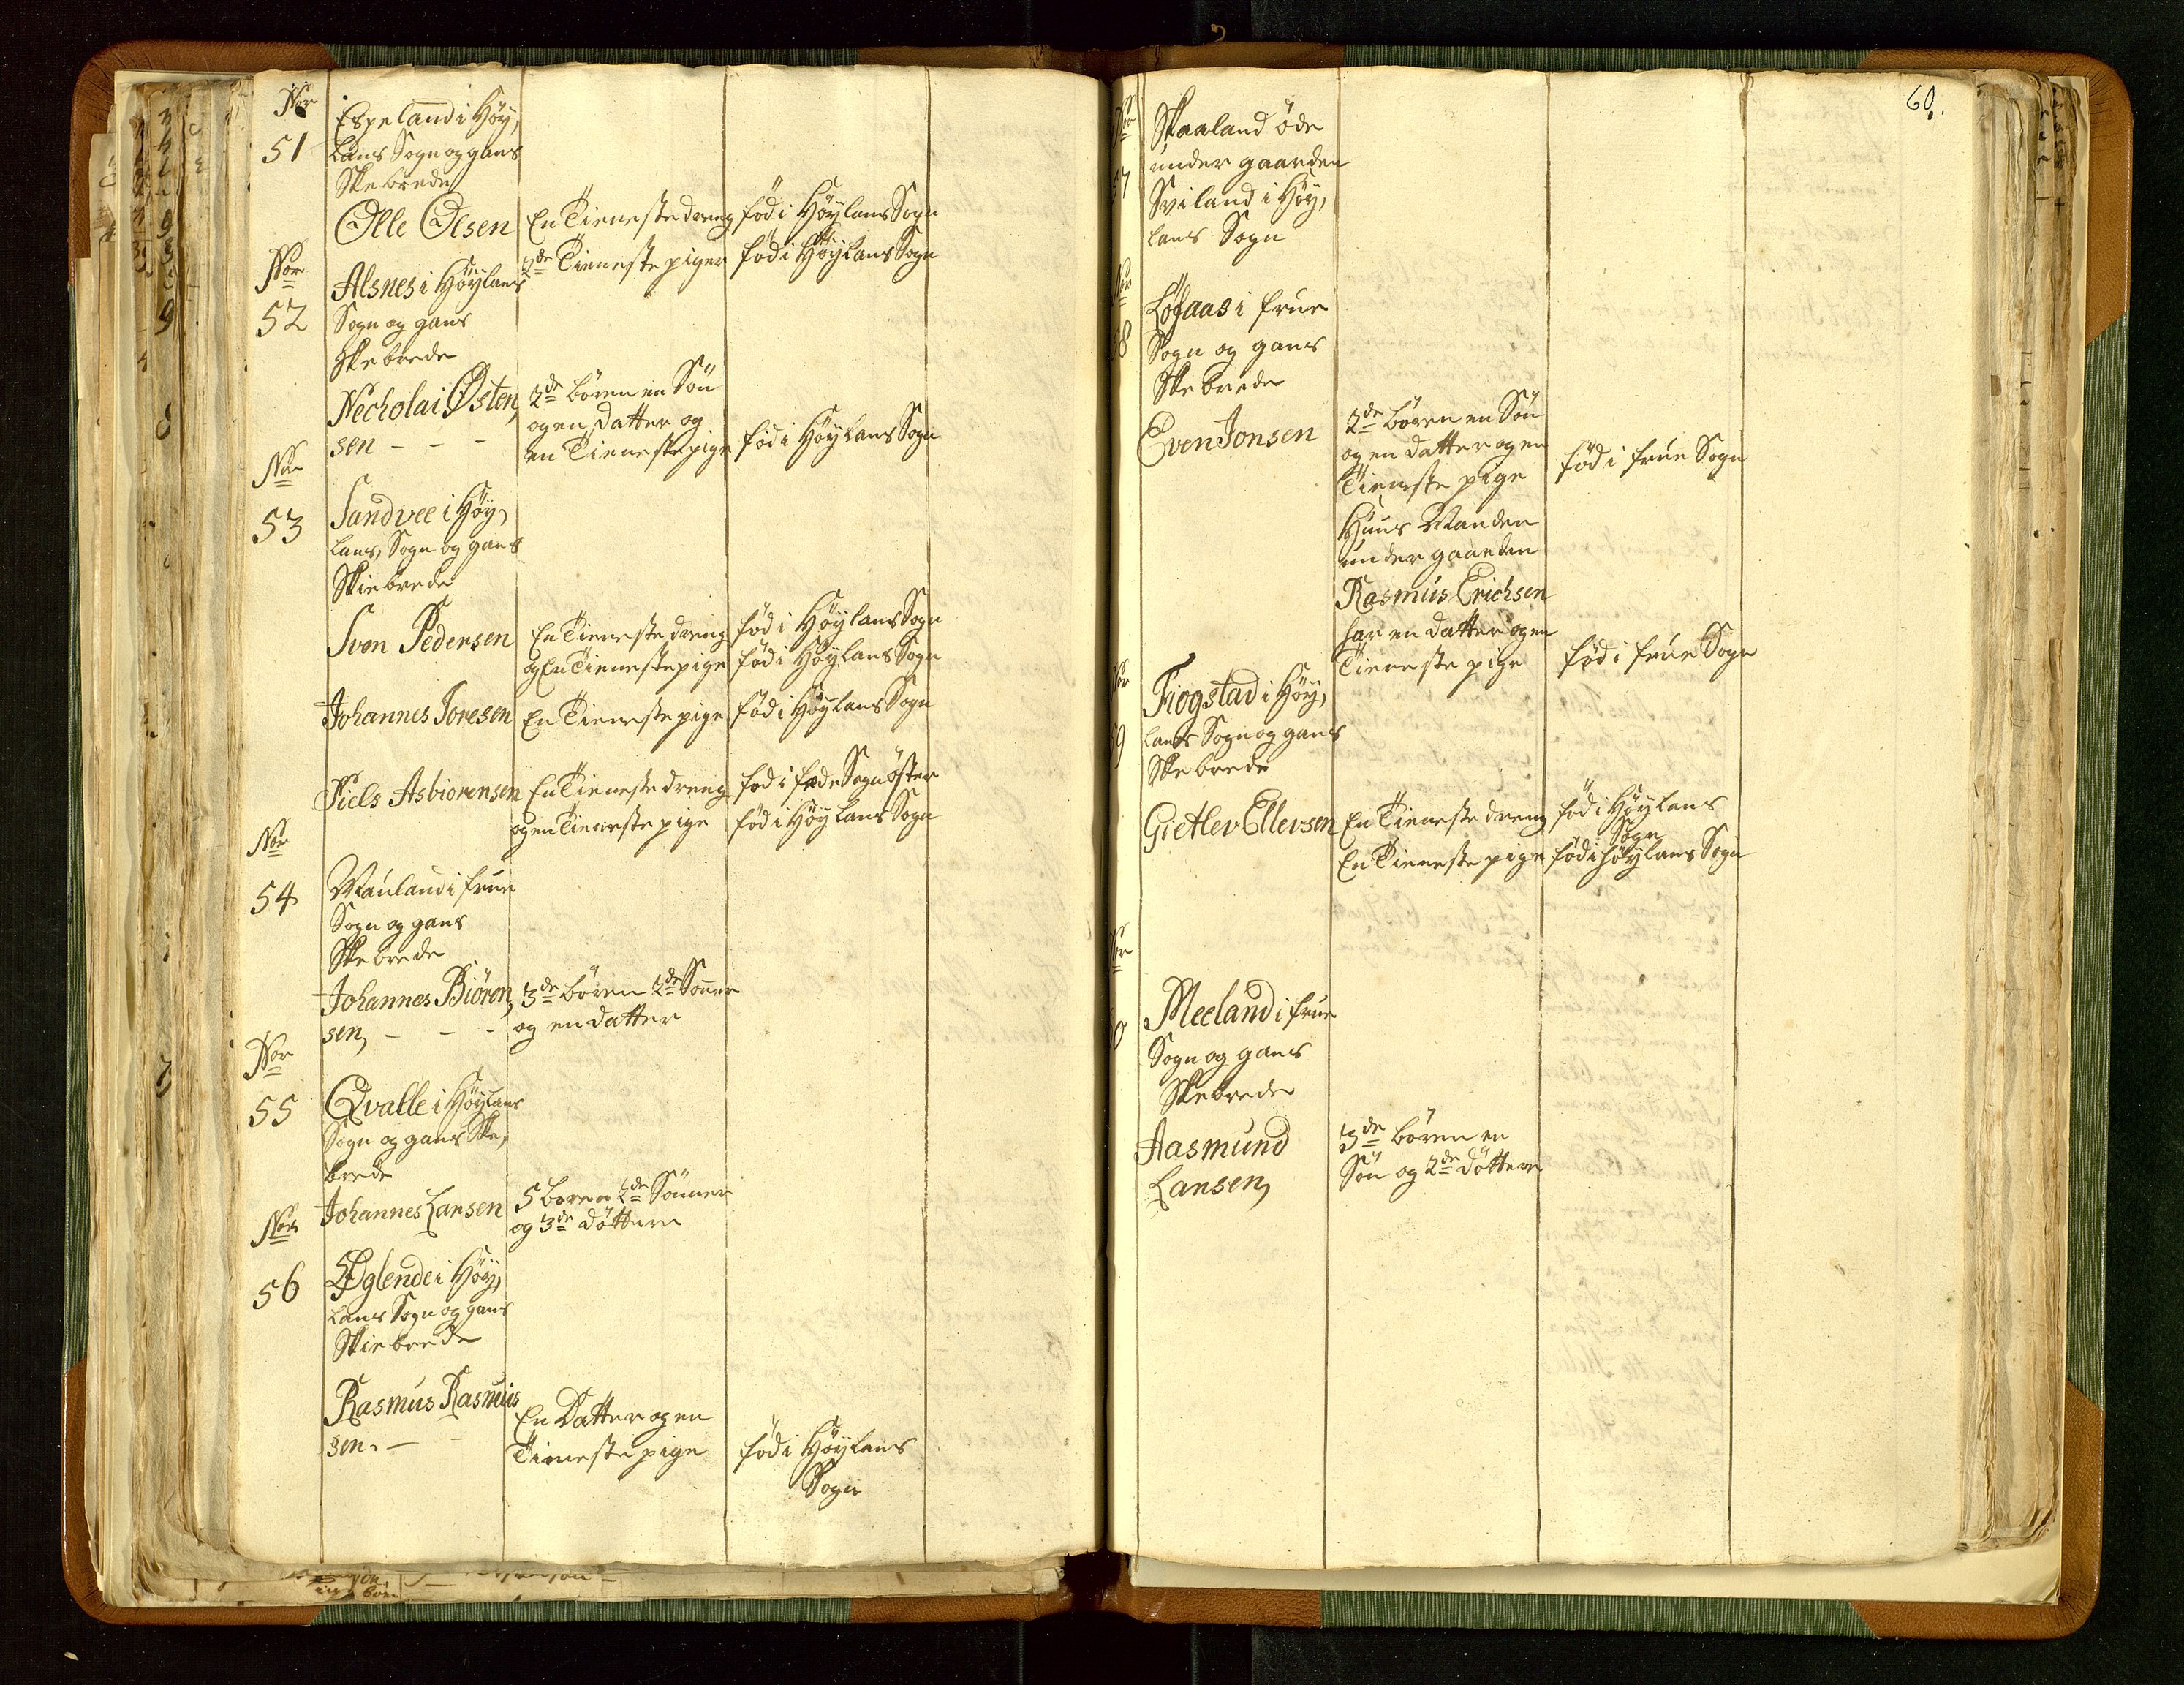 Nor
51
Espeland i Höy,
lans Sogn og gans
Skebrede
Olle Olsen
En Tieneste dreng
föd i Höylans Sogn
2de Tieneste piger
föd i Höylans Sogn
Nor
52
Alsnes i Höylans
Sogn og gans
Skebrede
Necholai Østen,
sen - - -
2de börn en Sön
og en datter og
en Tieneste pige
föd i Höylans Sogn
Nor
53
Sandvee i Höy,
lans, Sogn og gans
Skiebrede
Sven Pedersen
En Tieneste dreng
föd i Höylans Sogn
og En Tieneste pige
föd i Höylans Sogn
Johannes Toresen
En Tieneste pige
föd i Höylans Sogn
Niels Asbiorensen
En Tieneste dreng
föd i Sogn öster
og en Tieneste pige
föd i Höylans Sogn
Nor
54
Mauland i frue
Sogn og gans
Skebrede
Johannes Biören,
sen, - - -
3de börn 2de Sönner
og en datter
Nor
55
Qvalle i Höylans
Sogn og gans Ske,
brede
Johannes Larsen
5 börn 2de Sönner
og 3de döttere
Nor
56
Øglende i Höy,
lans Sogn og gans
Skiebrede
Rasmus Rasmus
sen. - -
En Datter og en
Tieneste pige
föd i Höylans
Sogn
60.
Nor
57
Skaaland öde
under gaarden
Sviland i Höy,
lans Sogn
Nor
58
Löfaas i frue
Sogn og gans
Skebrede
Even Jonsen
2de börn en Sön
og en datter og en
Tieneste pige
föd i frue Sogn
Huus Manden
under gaarden
Rasmus Erichsen
har en datter og en
Tieneste pige
föd i frue Sogn
Nor
59
Fiogstad i Höy,
lands Sogn og gans
Skebrede
Gietlev Ellevsen
En Tieneste dreng
föd i Höylans
Sogn
En Tieneste pige
föd i höylans Sogn
Nor
60
Meeland i frue
Sogn og gans
Skebrede
Aasmund
Larsen,
3de börn en
Sön og 2de döttere